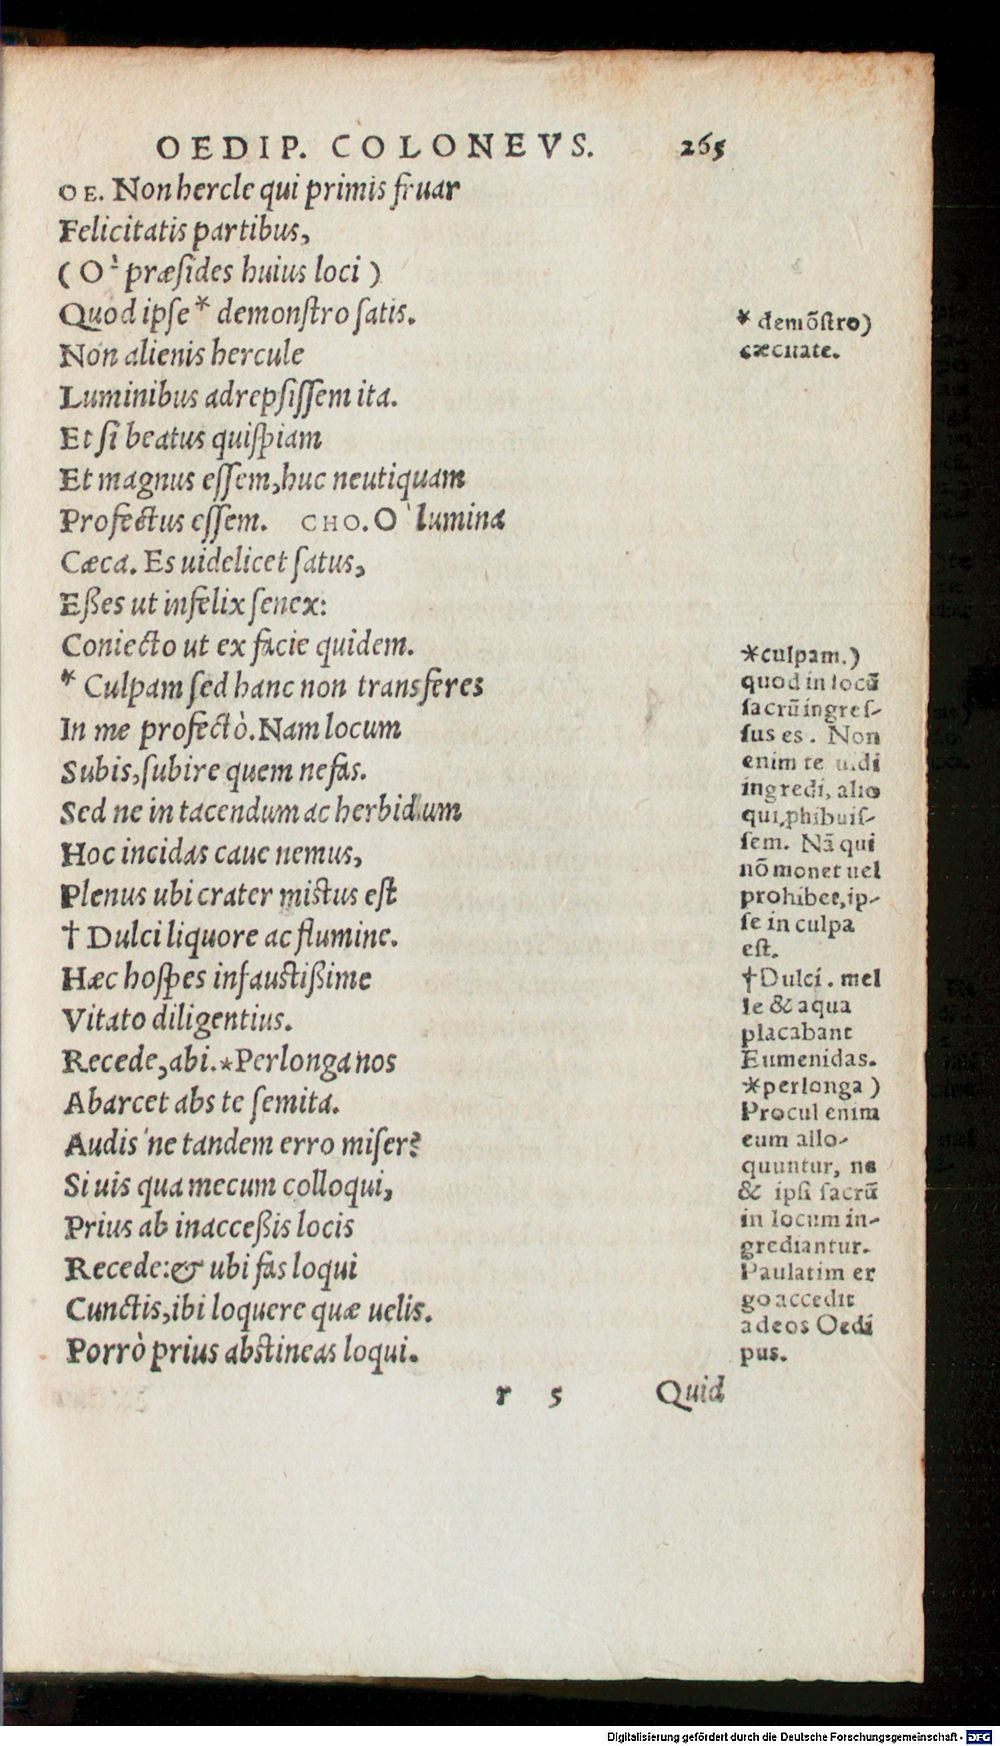 OEDIP. COLONEVS. 265
OE. Non hercle qui primis fruar
Felicitatis partibus,
(O` præsides huius loci)
Quod ipse* demonstro satis.
Non alienis hercule
Luminibus adrepsissem ita.
Et si beatus quispiam
Et magnus essem, huc neutiquam
Profectus essem. CHO. O` lumina
Cæca. Es uidelicet satus,
Eßes ut infelix senex:
Coniecto ut ex facie quidem.
* Culpam sed hanc non transferes
In me profectò. Nam locum
Subis, subire quem nefas.
Sed ne in tacendum ac herbidum
Hoc incidas caue nemus,
Plenus ubi crater mistus est
† Dulci liquore ac flumine.
Hæc hospes infaustißime
Vitato diligentius.
Recede, abi.*Perlonga nos
Abarcet abs te semita.
Audis'ne tandem erro miser?
Si uis qua mecum colloqui,
Prius ab inacceßis locis
Recede:& ubi fas loqui
Cunctis, ibi loquere quæ uelis.
Porrò prius abstineas loqui.
r 5 Quid
* demõstro)
cæcitate.
*culpam.)
quod in locũ
sacrũ ingres-
sus es. Non
enim te uidi
ingredi, alio
qui ꝓhibuis-
sem. Nã qui
nõ monet uel
prohibet, ip-
se in culpa
est.
†Dulci. mel
le & aqua
placabant
Eumenidas.
*perlonga)
Procul enim
eum allo-
quuntur, ne
& ipsi sacrũ
in locum in-
grediantur.
Paulatim er
go accedit
ad eos Oedi
pus.
Digitalisierung gefördert durch die Deutsche Forschungsgemeinschaft - DFG